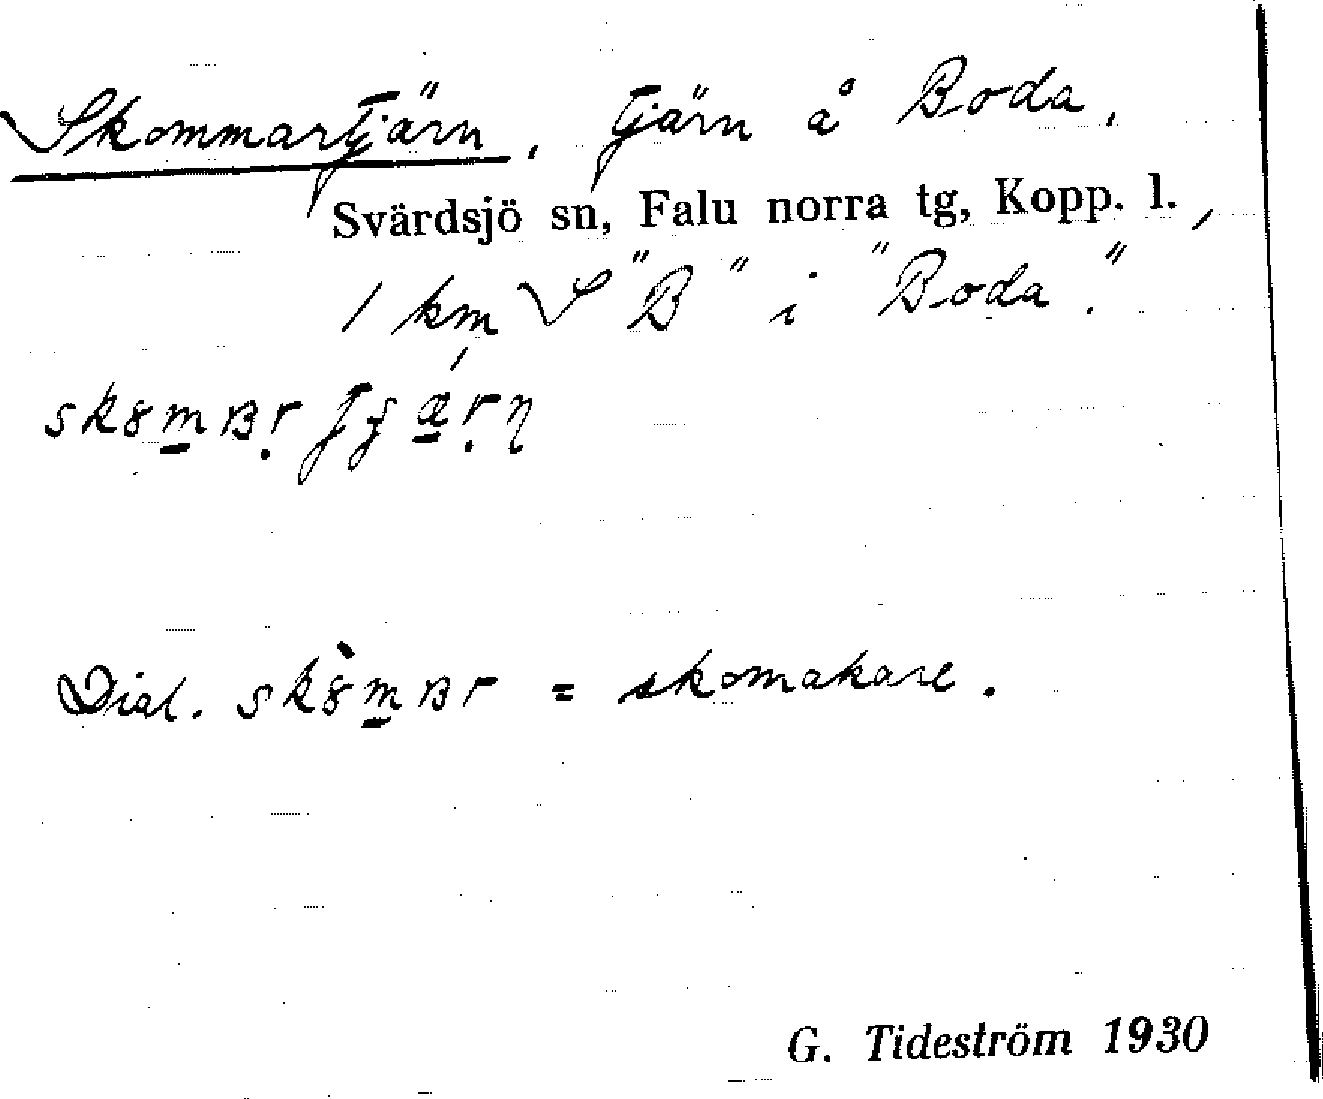 Skommartjärn, Tjärn å Boda,
Svärdsjö sn, Falu norra tg, Kopp. l.,
1 km S "B" i "Boda".
Dial. = skomakare.
G. Tideström 1930